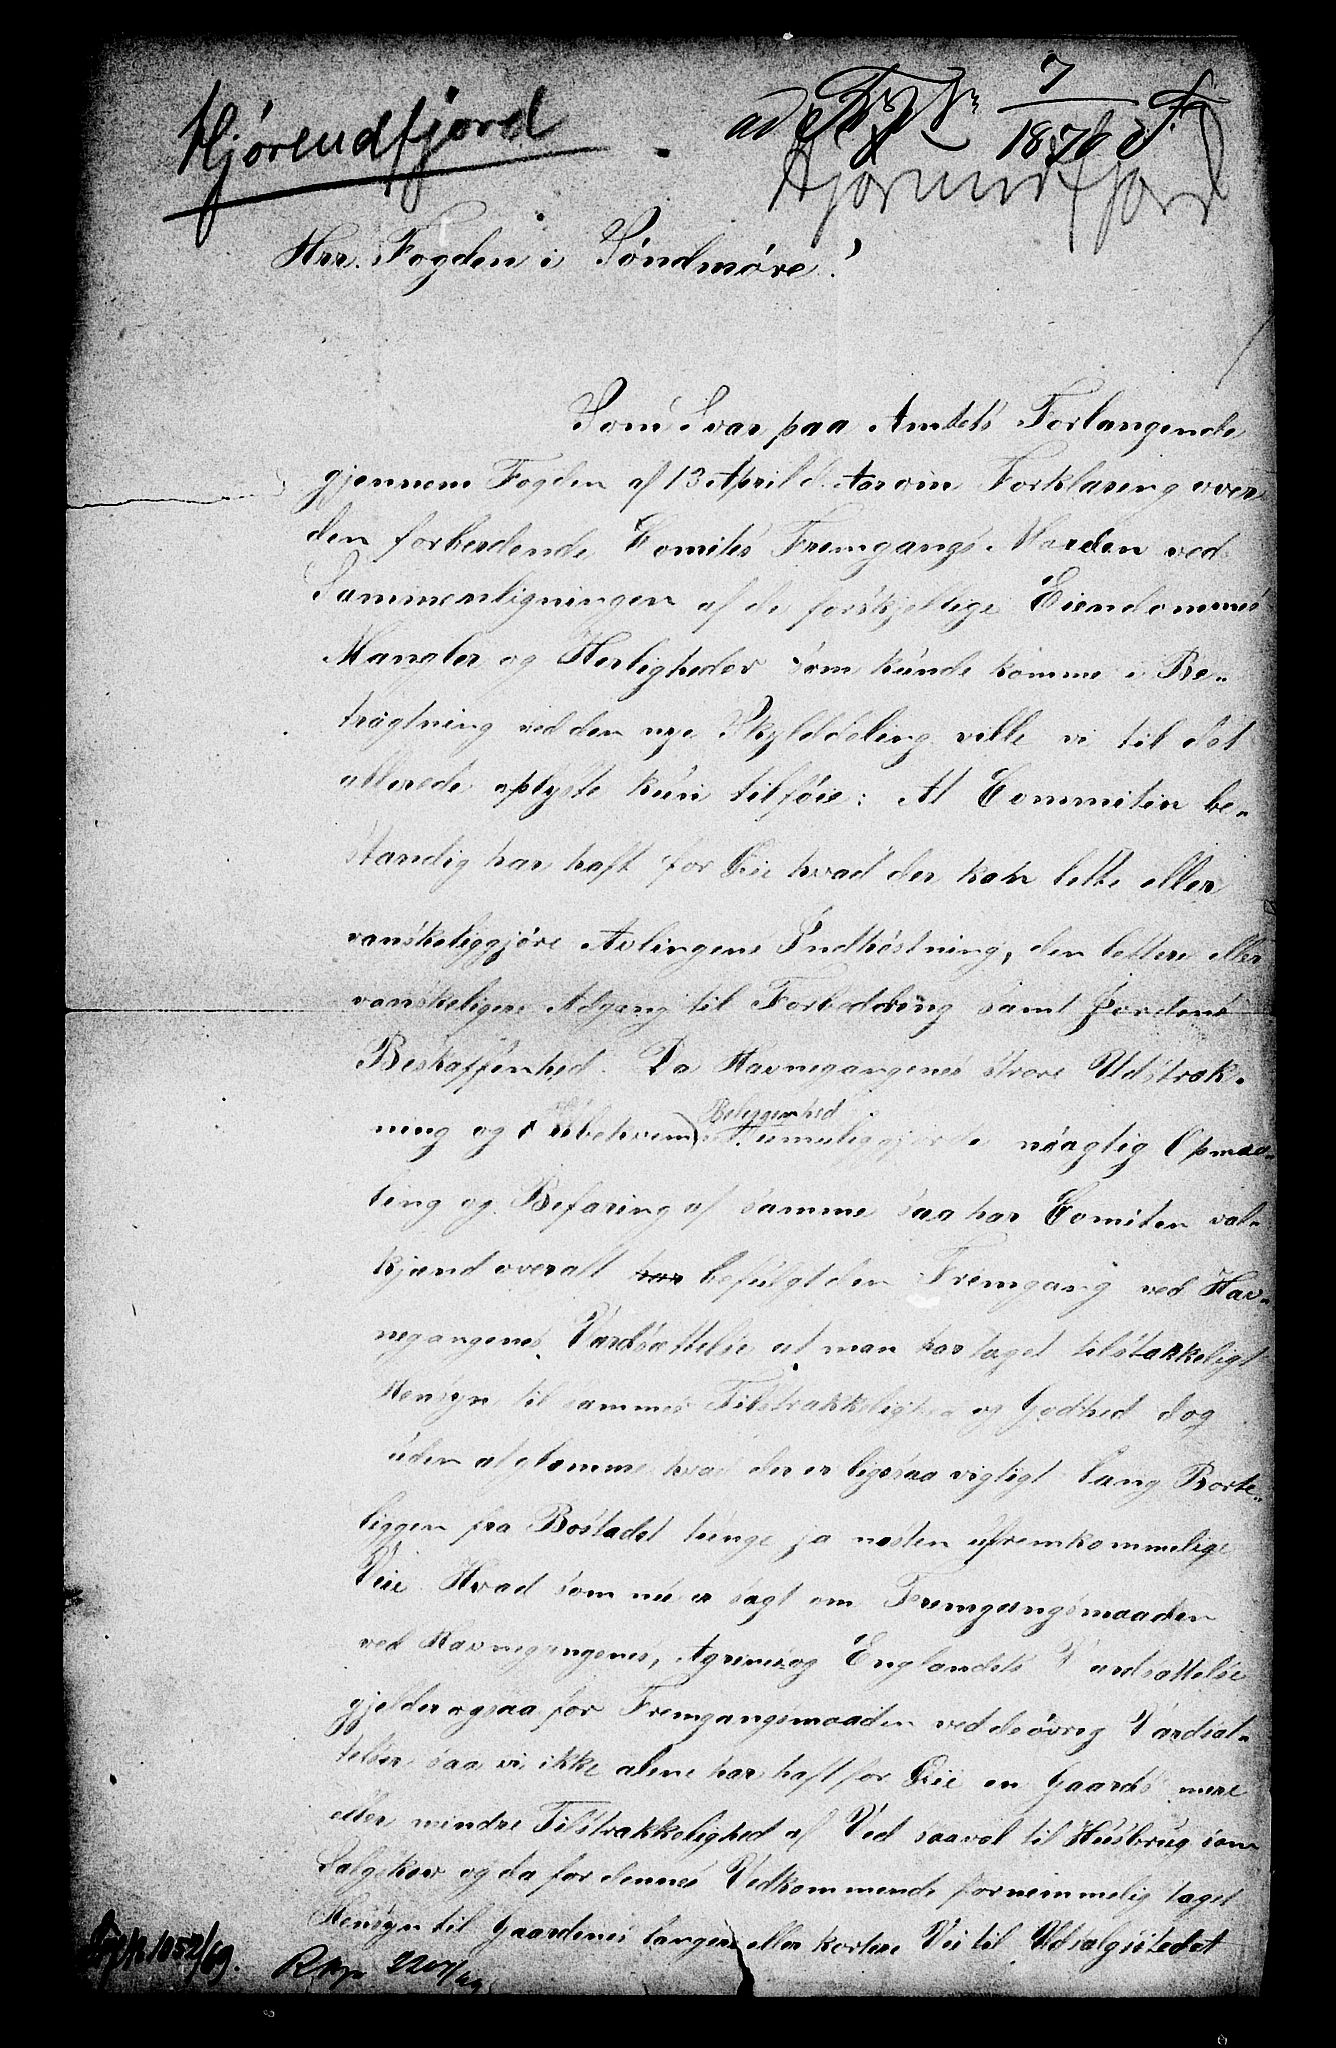 Hjörendfjord
ad 7/1876
Hjörundfjord
Hrr. Fogden i Söndmöre!
Som Svar paa Amtets Forlangende
gjennem Fogden af 13 April d. Aar om Forklaring over
den forberedende Comites Fremgangs Maaden ved
Sammenligningen af de forskjellige Eiendommes
Mangler og Herligheder som kunde komme i Be„
tragtning ved den nye Skylddeling ville vi til det
allerede oplyste kun tilföie: At Commiteen be„
standig har haft for Öie hvad der kan lette eller
vanskeliggjöre Avlingens Indhöstning, den lettere eller
vanskeligere Adgang til Forbedring samt Jordens
Beskaffenhed. Da Havnegangenes store Udstræk„
ning og ubekvem Beliggenhed umuliggjorde nöiagtig Opmaa„
ling og Befaring af samme saa har Comiten vel„
kjend overalt har befulgt den Fremgang ved Hav„
negangenes Værdsættelse at man har taget tilstrækkeligt
Hensyn til sammes Tilstrækkelighed og Godhed dog
uden at glemme hvad der er ligesaa vigtigt lang Borte„
liggen fra Bostadet tunge ja næsten ufremkommelige
Veie. Hvad som nu er sagt om Fremgangsmaaden
ved Havnegangenes, Agrenes og Englandets Værdsættelse
gjelder ogsaa for Fremgangsmaaden ved de övrig Værdsæt„
telser saa vi ikke alene har haft for Öie en Gaards mere
eller mindre Tilstrækkelighed af Ved saavel til Husbrug som
Salgskov og da for dennes Vedkommende fornemmelig taget
Hensyn til Gaardenes længere eller kortere Vei til Udsalgsstedet
1052/69.
Rkp 2207/69